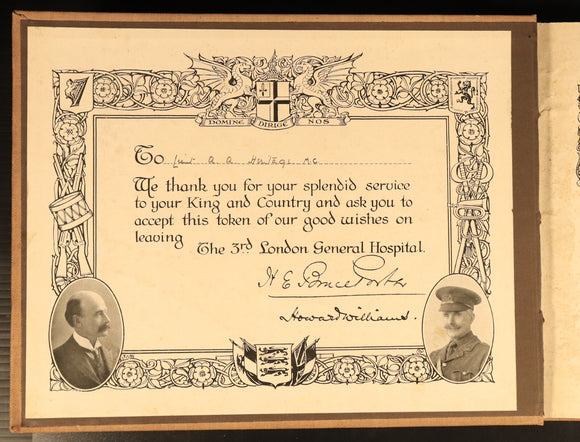 DOMINE DIRIGE NOS
To Lieut A. A. M.C.
We thank you for your splendid service
to your King and Country and ask you to
accept this token of our good wishes on
leaving
The 3rd London General Hospital.
H E Bruce Porter
Howard Williams.